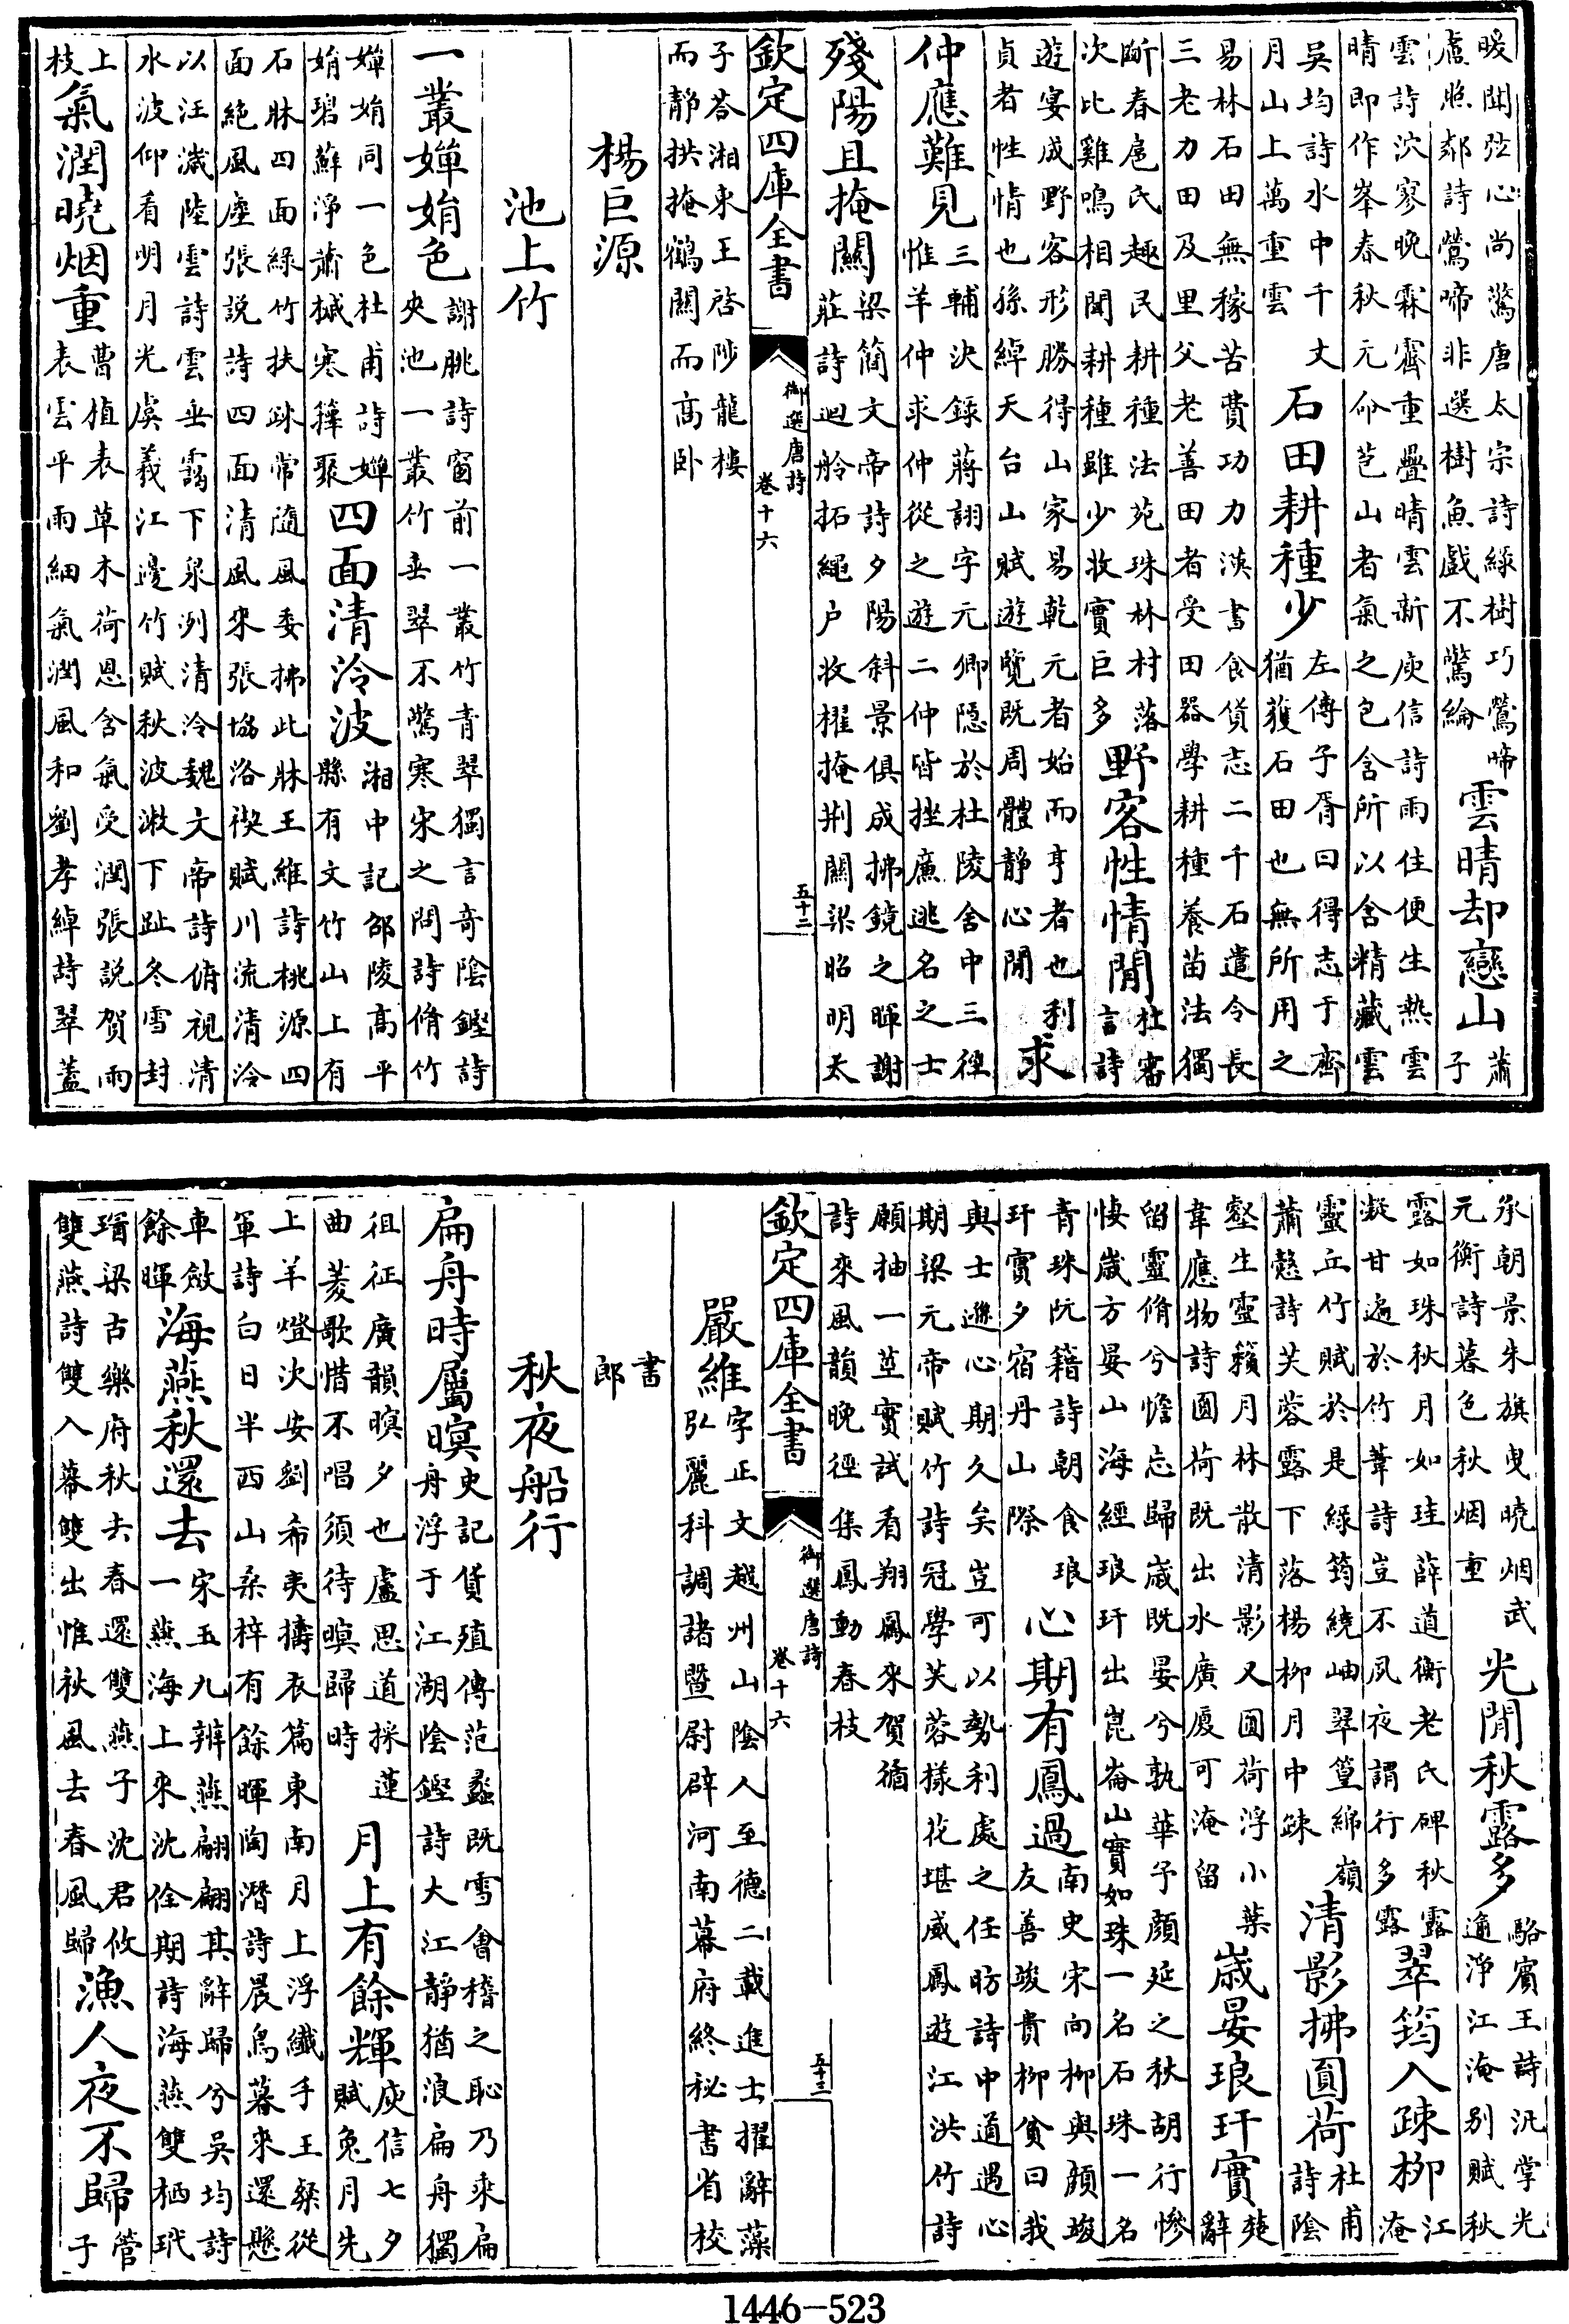 暖聞弦心尚驚唐太宗詩綠樹巧鶯啼
盧照鄰詩鶯啼非選樹魚戲不驚綸
雲晴却戀山
蕭
子
雲詩泬寥晚霖霽重疊晴雲新庾信詩雨住便生熱雲
晴即作峯春秋元命苞山者氣之包含所以含精藏雲
吳均詩水中千丈
月山上萬重雲
石田耕種少
左傳子胥曰得志于齊
猶獲石田也無所用之
易林石田無稼苦費功力漢書食貨志二千石遣令長
三老力田及里父老善田者受田器學耕種養苗法獨
斷春扈氏趣民耕種法苑珠林村落
次比雞鳴相聞耕種雖少收實巨多
野客性情閒
杜審
言詩
遊宴成野客形勝得山家易乾元者始而亨者也利
貞者性情也孫綽天台山賦遊覽既周體靜心閒
求
仲應難見
三輔決錄蔣詡字元卿隱於杜陵舍中三徑
惟羊仲求仲從之遊二仲皆挫廉逃名之士
殘陽且掩關
梁簡文帝詩夕陽斜景俱成拂鏡之暉謝
莊詩迴舲拓繩户收櫂掩荆關梁昭明太
欽定四庫全書
御選唐詩
卷十六
五十二
子荅湘東王啓陟龍樓
而靜拱掩鶴關而高卧
楊巨源
池上竹
一叢嬋娟色
謝朓詩窗前一叢竹青翠獨言奇陰鏗詩
夾池一叢竹垂翠不驚寒宋之問詩脩竹
嬋娟同一色杜甫詩嬋
娟碧蘚淨蕭摵寒籜聚
四面清泠波
湘中記邵陵高平
縣有文竹山上有
石牀四面綠竹扶踈常隨風委拂此牀王維詩桃源四
面絶風塵張説詩四面清風來張協洛禊賦川流清泠
以汪濊陸雲詩雲垂靄下泉洌清泠魏文帝詩俯視清
水波仰看明月光虞羲江邊竹賦秋波漱下趾冬雪封
上
枝
氣潤曉烟重
曹植表草木荷恩含氣受潤張説賀雨
表雲平雨細氣潤風和劉孝綽詩翠蓋
承朝景朱旗曳曉烟武
元衡詩暮色秋烟重
光閒秋露多
駱賓王詩汎掌光
逾淨江淹別賦秋
露如珠秋月如珪薛道衡老氏碑秋露
凝甘遍於竹葦詩豈不夙夜謂行多露
翠筠入疎栁
江
淹
靈丘竹賦於是綠筠繞岫翠篁綿嶺
蕭愨詩芙蓉露下落楊栁月中踈
清影拂圓荷
杜甫
詩陰
壑生靈籟月林散清影又圓荷浮小葉
韋應物詩圓荷既出水廣厦可淹留
歲晏琅玕實
楚
辭
留靈脩兮憺忘歸歲既晏兮孰華予顔延之秋胡行慘
悽歲方晏山海經琅玕出崑崙山實如珠一名石珠一名
青珠阮籍詩朝食琅
玕實夕宿丹山際
心期有鳳過
南史宋向栁與顔竣
友善竣貴栁貧曰我
與士遜心期久矣豈可以勢利處之任昉詩中道遇心
期梁元帝賦竹詩冠學芙蓉樣花堪威鳳遊江洪竹詩
願抽一莖實試看翔鳳來賀循
詩來風韻晚徑集鳳動春枝
欽定四庫全書
御選唐詩
卷十六
五十三
嚴維
字正文越州山陰人至德二載進士擢辭藻
弘麗科調諸暨尉辟河南幕府終秘書省校
書
郎
秋夜船行
扁舟時屬暝
史記貨殖傳范蠡既雪會稽之恥乃乘扁
舟浮于江湖陰鏗詩大江靜猶浪扁舟獨
徂征廣韻暝夕也盧思道採蓮
曲菱歌惜不唱須待暝歸時
月上有餘輝
庾信七夕
賦兔月先
上羊燈次安劉希夷擣衣篇東南月上浮纖手王粲從
軍詩白日半西山桑梓有餘暉陶潛詩晨鳥暮來還懸
車斂
餘暉
海燕秋還去
宋玉九辨燕翩翩其辭歸兮吳均詩
一燕海上來沈佺期詩海燕雙栖玳
瑁梁古樂府秋去春還雙燕子沈君攸
雙燕詩雙入幕雙出惟秋風去春風歸
漁人夜不歸
管
子
1446-523